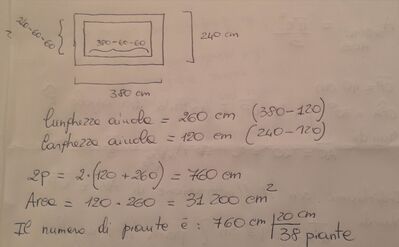 240-60-60
380-60-60
240 cm
380 cm
Lunghezza aiuola = 260 cm (380-120)
larghezza aiuola = 120 cm (240-120)
2p = 2·(120+260) = 760 cm
Area = 120 · 260 = 31 200 cm²
Il numero di piante è: 760 cm | 20 cm
38 piante